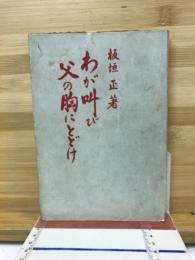 板垣正著
わが叫び
父の胸にとどけ